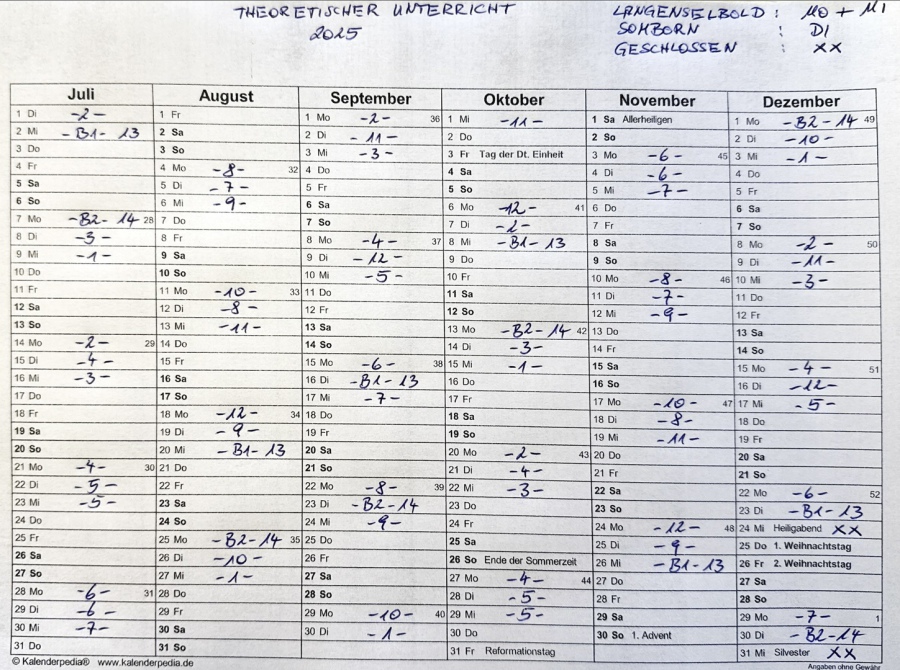 THEORETISCHER UNTERRICHT
2025
LANGENSELBOLD : MO + MI
SOMBORN : DI
GESCHLOSSEN : XX
Juli
1 Di -2-
2 Mi -B1-13
3 Do
4 Fr
5 Sa
6 So
7 Mo -B2-14 28
8 Di -3-
9 Mi -1-
10 Do
11 Fr
12 Sa
13 So
14 Mo -2- 29
15 Di -4-
16 Mi -3-
17 Do
18 Fr
19 Sa
20 So
21 Mo -4- 30
22 Di -5-
23 Mi -5-
24 Do
25 Fr
26 Sa
27 So
28 Mo -6- 31
29 Di -6-
30 Mi -7-
31 Do
August
1 Fr
2 Sa
3 So
4 Mo -8- 32
5 Di -7-
6 Mi -9-
7 Do
8 Fr
9 Sa
10 So
11 Mo -10- 33
12 Di -8-
13 Mi -11-
14 Do
15 Fr
16 Sa
17 So
18 Mo -12- 34
19 Di -9-
20 Mi -B1-13
21 Do
22 Fr
23 Sa
24 So
25 Mo -B2-14 35
26 Di -10-
27 Mi -1-
28 Do
29 Fr
30 Sa
31 So
September
1 Mo -2- 36
2 Di -11-
3 Mi -3-
4 Do
5 Fr
6 Sa
7 So
8 Mo -4- 37
9 Di -12-
10 Mi -5-
11 Do
12 Fr
13 Sa
14 So
15 Mo -6- 38
16 Di -B1-13
17 Mi -7-
18 Do
19 Fr
20 Sa
21 So
22 Mo -8- 39
23 Di -B2-14
24 Mi -9-
25 Do
26 Fr
27 Sa
28 So
29 Mo -10- 40
30 Di -1-
Oktober
1 Mi -11-
2 Do
3 Fr Tag der Dt. Einheit
4 Sa
5 So
6 Mo -12- 41
7 Di -2-
8 Mi -B1-13
9 Do
10 Fr
11 Sa
12 So
13 Mo -B2-14 42
14 Di -3-
15 Mi -1-
16 Do
17 Fr
18 Sa
19 So
20 Mo -2- 43
21 Di -4-
22 Mi -3-
23 Do
24 Fr
25 Sa
26 So Ende der Sommerzeit
27 Mo -4- 44
28 Di -5-
29 Mi -5-
30 Do
31 Fr Reformationstag
November
1 Sa Allerheiligen
2 So
3 Mo -6- 45
4 Di -6-
5 Mi -7-
6 Do
7 Fr
8 Sa
9 So
10 Mo -8- 46
11 Di -7-
12 Mi -9-
13 Do
14 Fr
15 Sa
16 So
17 Mo -10- 47
18 Di -8-
19 Mi -11-
20 Do
21 Fr
22 Sa
23 So
24 Mo -12- 48
25 Di -9-
26 Mi -B1-13
27 Do
28 Fr
29 Sa
30 So 1. Advent
Dezember
1 Mo -B2-14 49
2 Di -10-
3 Mi -1-
4 Do
5 Fr
6 Sa
7 So
8 Mo -2- 50
9 Di -11-
10 Mi -3-
11 Do
12 Fr
13 Sa
14 So
15 Mo -4- 51
16 Di -12-
17 Mi -5-
18 Do
19 Fr
20 Sa
21 So
22 Mo -6- 52
23 Di -B1-13
24 Mi Heiligabend XX
25 Do 1. Weihnachtstag
26 Fr 2. Weihnachtstag
27 Sa
28 So
29 Mo -7- 1
30 Di -B2-14
31 Mi Silvester XX
© Kalenderpedia® www.kalenderpedia.de
Angaben ohne Gewähr